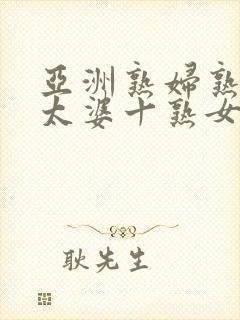 亞洲熟婦熟
太婆十熟女
耿先生